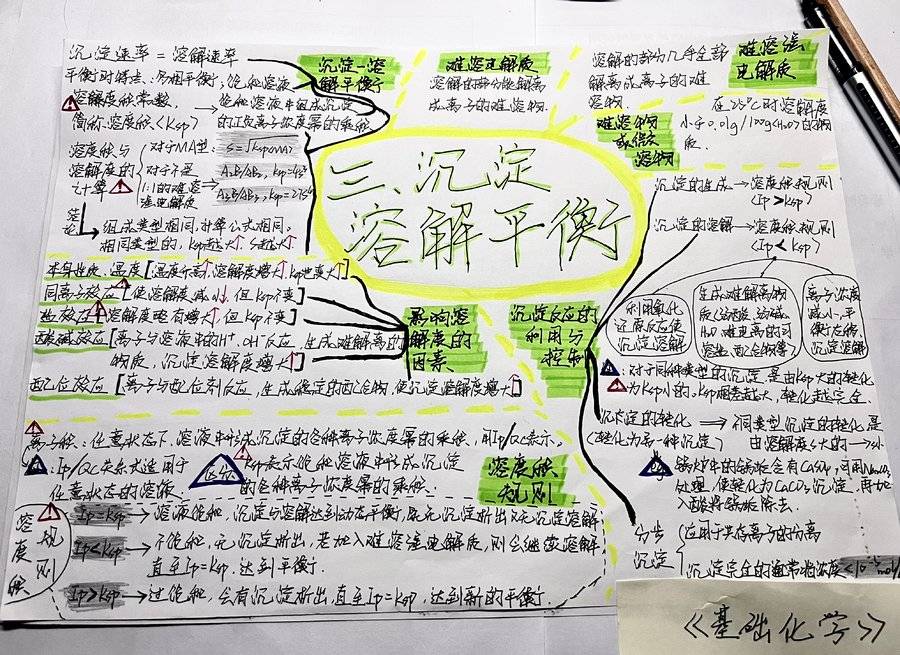 三、沉淀
溶解平衡
沉淀速率 = 溶解速率
平衡时特点：多相平衡，饱和溶液
沉淀—溶
解平衡
溶解度积常数，
简称溶度积<Ksp>
→ 饱和溶液中组成沉淀
的正负离子浓度幂的乘积
溶度积与
溶解度的
计算
对于MA型：
对于不是
1:1的难溶
强电解质
S=√Ksp(MA)
A₂B/AB₂, Ksp=4S³
A₃B/AB₃, Ksp=27S⁴
结论
组成类型相同，计算公式相同。
相同类型的，Ksp越大↑ S越大↑
难溶电解质
溶解的部分能解离
成离子的难溶物.
难溶强
电解质
溶解的部分几乎全部
解离成离子的难
溶物.
难溶物
或微
溶物
在25℃时溶解度
小于0.01g/100g<H₂O>的物
质.
影响溶
解度的
因素
本身性质、温度[温度升高↑,溶解度增大↑,Ksp也变大↑]
同离子效应[使溶解度减小↓,但Ksp不变]
盐效应[溶解度略有增大↑,但Ksp不变]
酸碱效应[离子与溶液中的H⁺.OH⁻反应,生成难解离的
物质,沉淀溶解度增大↑]
配位效应[离子与配位剂反应,生成稳定的配合物,使沉淀溶解度增大↑]
沉淀反应的
利用与
控制
沉淀的生成 → 溶度积规则
<Ip>Ksp>
沉淀的溶解 → 溶度积规则
<Ip<Ksp>
利用氧化
还原反应使
沉淀溶解
生成难解离物
H₂O.难解离的可
溶盐.配合物等>
离子浓度
减小,平
衡右移,
沉淀溶解
对于同种类型的沉淀,是由Ksp大的转化
为Ksp小的,Ksp相差越大,转化越完全.
沉淀的转化
<转化为另一种沉淀>
→ 不同类型沉淀的转化是
由溶解度S大的→S小
锅炉中的锅垢含有CaSO₄,可用Na₂CO₃
处理,使转化为CaCO₃沉淀,再加
入酸将锅垢除去.
分步
沉淀
应用于共存离子的分离
沉淀完全的通常指浓度<10⁻⁵mol/
溶度积
规则
离子积：任意状态下,溶液中形成沉淀的各种离子浓度幂的乘积,用Ip/Qc表示.
Ip/Qc关系式适用于
任意状态的溶液.
区分
Ksp表示饱和溶液中形成沉淀
的各种离子浓度幂的乘积.
溶度积
规则
Ip=Ksp → 溶液饱和,沉淀与溶解达到动态平衡,既无沉淀析出又无沉淀溶解
Ip<Ksp → 不饱和,无沉淀析出,若加入难溶强电解质,则会继续溶解
直至Ip=Ksp.达到平衡.
Ip>Ksp → 过饱和,会有沉淀析出,直至Ip=Ksp,达到新的平衡.
《基础化学》